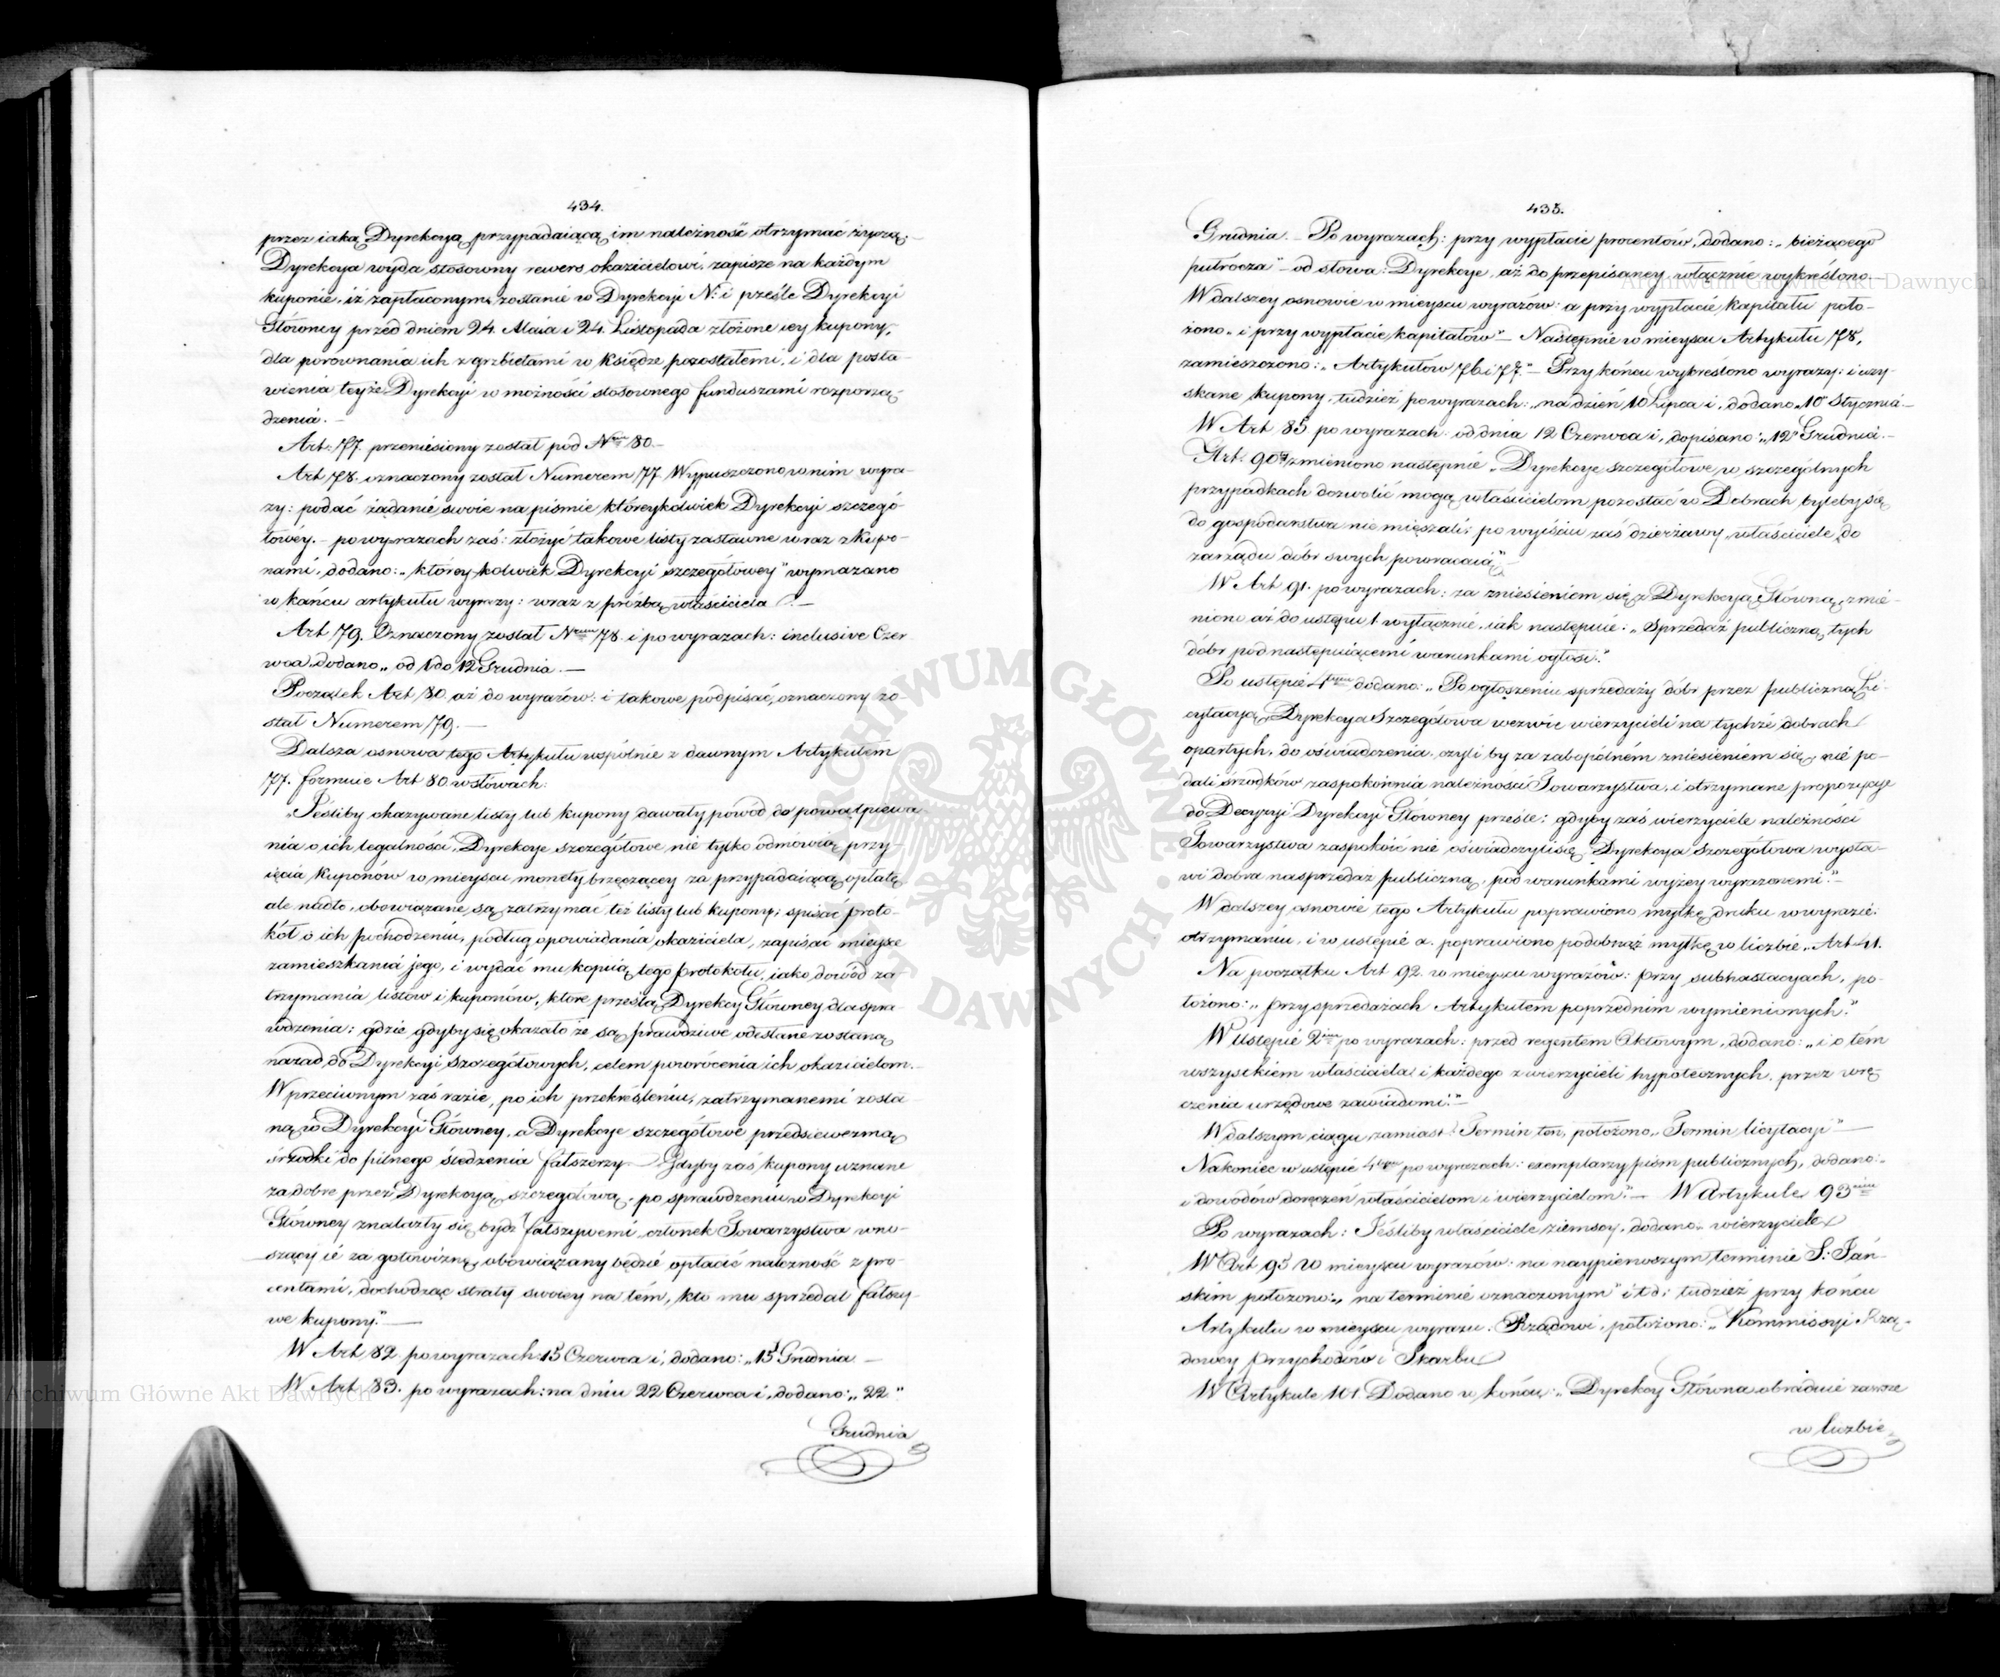 434.
przez iaką Dyrekcyą przypadaiącą im należność otrzymać życzą.
Dyrekcya wyda stosowny rewers okazicielowi, zapisze na każdym
kuponie, iż zapłaconym zostanie w Dyrekcyi N: i prześle Dyrekcyi
Głównéy przed dniem 24. Maia i 24. Listopada złożone iéy kupony,
dla porównania ich z grzbietami w księdze pozostałemi, i dla posta-
wienia teyże Dyrekcyi w możności stosownego funduszami rozporzą-
dzenia. –
Art: 77. przeniesiony został pod Nrem 80.–
Art 78. oznaczony został Numerem 77 Wypuszczono w nim wyra-
zy: podać żądanie swoie na piśmie któréykolwiek Dyrekcyi szczegó-
łowéy. – po wyrazach zaś: złożyć takowe listy zastawne wraz z kupo-
nami, dodano: „któréy kolwiek Dyrekcyi szczegółowéy" wymazano
w końcu artykułu wyrazy: wraz z prośbą właściciela. –
Art 79. Oznaczony został Nrem 78. i po wyrazach: inclusive Czer-
wca, dodano „od 1 do 12 Grudnia. –
Początek Art 80. aż do wyrazów: i takowe podpisać, oznaczony zo-
stał Numerem 79. –
Dalsza osnowa tego Artykułu wspólnie z dawnym Artykułem
77. formuie Art 80. w słowach:
„Jeśliby okazywane listy lub kupony dawały powód do powątpiewa-
nia o ich legalności, Dyrekcye szczegółowe nie tylko odmówią przy-
ięcia kuponów w mieyscu monety brzęczącéy za przypadaiącą opłatę
ale nadto, obowiązane są zatrzymać też listy lub kupony, spisać proto-
kół o ich pochodzeniu, podług opowiadania okaziciela, zapisać mieysce
zamieszkania jego, i wydać mu kopiią tego protokołu, iako dowód za
trzymania listów i kuponów, które prześlą Dyrekcy Głównéy dla spra-
wdzenia: gdzie gdyby się okazało że są prawdziwe odesłane zostaną
nazad do Dyrekcyi szczegółowych, celem powrócenia ich okazicielom.
W przeciwnym zaś razie, po ich przekreśleniu, zatrzymanemi zosta-
ną w Dyrekcyi Głównéy, a Dyrekcye szczegółowe przedsiewezmą
śrzodki do pilnego śledzenia fałszerzy. – Gdyby zaś kupony uznane
za dobre przez Dyrekcyą szczegółową, po sprawdzeniu w Dyrekcyi
Głównéy znalazły się bydź fałszywemi, członek Towarzystwa wno-
szący ié za gotowiznę, obowiązany będzie opłacić należność z pro-
centami, dochodząc straty swoiéy na tém, kto mu sprzedał fałszy-
we kupony." –
W Art 82. po wyrazach: 15 Czerwca i, dodano: „15 Grudnia –
W Art 83. po wyrazach: na dniu 22 Czerwca i, dodano: „22"
Grudnia
435.
Grudnia. – Po wyrazach: przy wypłacie procentów, dodano: „bieżącego
półrocza" – od słowa: Dyrekcye, aż do przepisanéy, włącznie wykreślono.–
W dalszéy osnowie w mieyscu wyrazów: a przy wypłacie kapitału poło-
żono „i przy wypłacie kapitałów" – Następnie w mieyscu Artykułu 78,
zamieszczono: „Artykułów 76 i 77." – Przy końcu wykreślono wyrazy: i uzy-
skane kupony, tudzież po wyrazach: „na dzień 10 Lipca i, dodano „10 Stycznia.–
W Art 85 po wyrazach: od dnia 12 Czerwca i, dopisano: „12" Grudnia.–
Art. 90 zmieniono następnie „Dyrekcye szczegółowe, w szczególnych
przypadkach dozwolić mogą właścicielom pozostać w Dobrach byleby się
do gospodarstwa nie mięszali; po wyiściu zaś dzierżawy, właściciele do
zarządu dóbr swych powracaią." –
W Art 91. po wyrazach: za zniesieniem się z Dyrekcyą Główną, zmie-
niono aż do ustępu 1. wyłącznie iak następuie: „Sprzedaż publiczną tych
dóbr pod następuiącemi warunkami ogłosi."
Po ustępie 4tym dodano: „Po ogłoszeniu sprzedaży dóbr przez publiczną Li-
cytacyą, Dyrekcya Szczegółowa wezwie wierzycieli na tychże dobrach
opartych, do oświadczenia, czyli by za zabopólném zniesieniem się, nie po-
dali śrzodków zaspokoienia należności Towarzystwa, i otrzymane propozycye
do Decyzyi Dyrekcyi Głównéy prześle: gdyby zaś wierzyciele należności
Towarzystwa zaspokoić nie oświadczyli się, Dyrekcya Szczegółowa wysta-
wi dobra na sprzedaż publiczną, pod warunkami wyżéy wyrażonemi." –
W dalszéy osnowie tego Artykułu poprawiono myłkę druku w wyrazie:
otrzymaniu, i w ustępie a. poprawiono podobnąż myłkę w liczbie „Art 41.
Na początku Art 92. w mieyscu wyrazów: przy subhastacyach, po-
łożono: „przy sprzedażach Artykułem poprzednim wymienionych."
W Ustępie 2im po wyrazach: przed regentem Aktowym, dodano: „i o tém
wszystkiém właściciela i każdego z wierzycieli hypotecznych, przez wrę
czenia urzędowe zawiadomi." –
W dalszym ciągu zamiast: Termin ten, położono „Termin licytacyi" –
Nakoniec w ustępie 4tym po wyrazach: exemplarzy pism publicznych, dodano:
i dowodów doręczeń właścicielom i wierzycielom." – W Artykule 93im
Po wyrazach: Jeśliby właściciele ziemscy, dodano „wierzyciele
W Art 95 w mieyscu wyrazów: na naypierwszym terminie S: Jań-
skim położono: „na terminie oznaczonym" i t d: tudzież przy końcu
Artykułu w mieyscu wyrazu: Rządowi, położono: „Kommissyi Rzą-
dowéy Przychodów i Skarbu
W Artykule 101 Dodano w końcu: „Dyrekcy Główna obraduie zawsze
w liczbie
ARCHIWUM GŁÓWNE AKT DAWNYCH
Archiwum Główne Akt Dawnych
Archiwum Główne Akt Dawnych